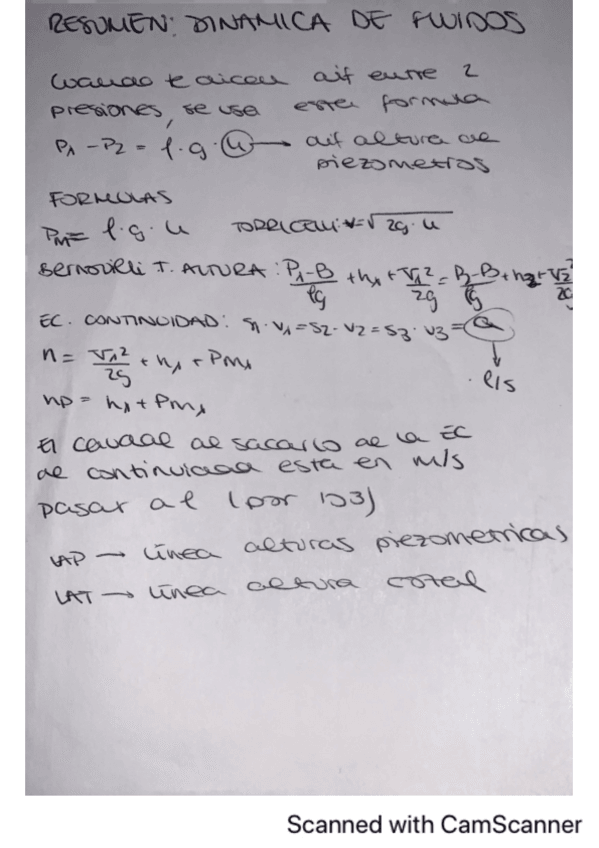 RESUMEN: DINAMICA DE FLUIDOS
Cuando te dicen dif entre 2
presiones, se usa esta formula
P1 - P2 = ρ · g · h → dif altura de
piezometros
FORMULAS
PM = ρ · g · h TORRICELLI: v = √2g · h
Bernouelli T. ALTURA: P1-B/ρg + h1 + V1²/2g = P2-B/ρg + h2 + V2²/2g
EC. CONTINUIDAD: S1 · V1 = S2 · V2 = S3 · V3 = Q
↓
l/s
h = V1²/2g + h1 + PM1
hp = h1 + PM1
El caudal al sacarlo de la EC
de continuidad esta en m/s
pasar a l (por 10^3)
LAP → línea alturas piezometricas
LAT → línea altura total
Scanned with CamScanner